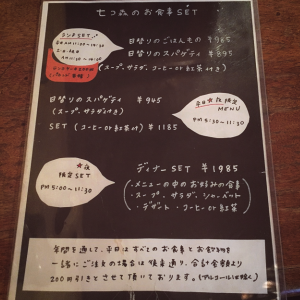 七つ森のお食事SET
ランチSET
日替りのごはんもの ¥965
日替りのスパゲティ ¥895
(スープ、サラダ、コーヒーor紅茶付き)
日替りのスパゲティ ¥945
(スープ、サラダ付き)
SET (コーヒーor紅茶付) ¥1185
平日夜限定
MENU
夜
限定SET
PM 5:00〜11:30
ディナーSET ¥1985
・メニューの中のお好みの食事
・スープ、サラダ、シャーベット
・デザート・コーヒーor紅茶
年間を通して、平日はすべてのお食事とお飲物を
一緒にご注文の場合は従来通り、合計金額より
200円引きとさせて頂いております。(アルコールは除く)